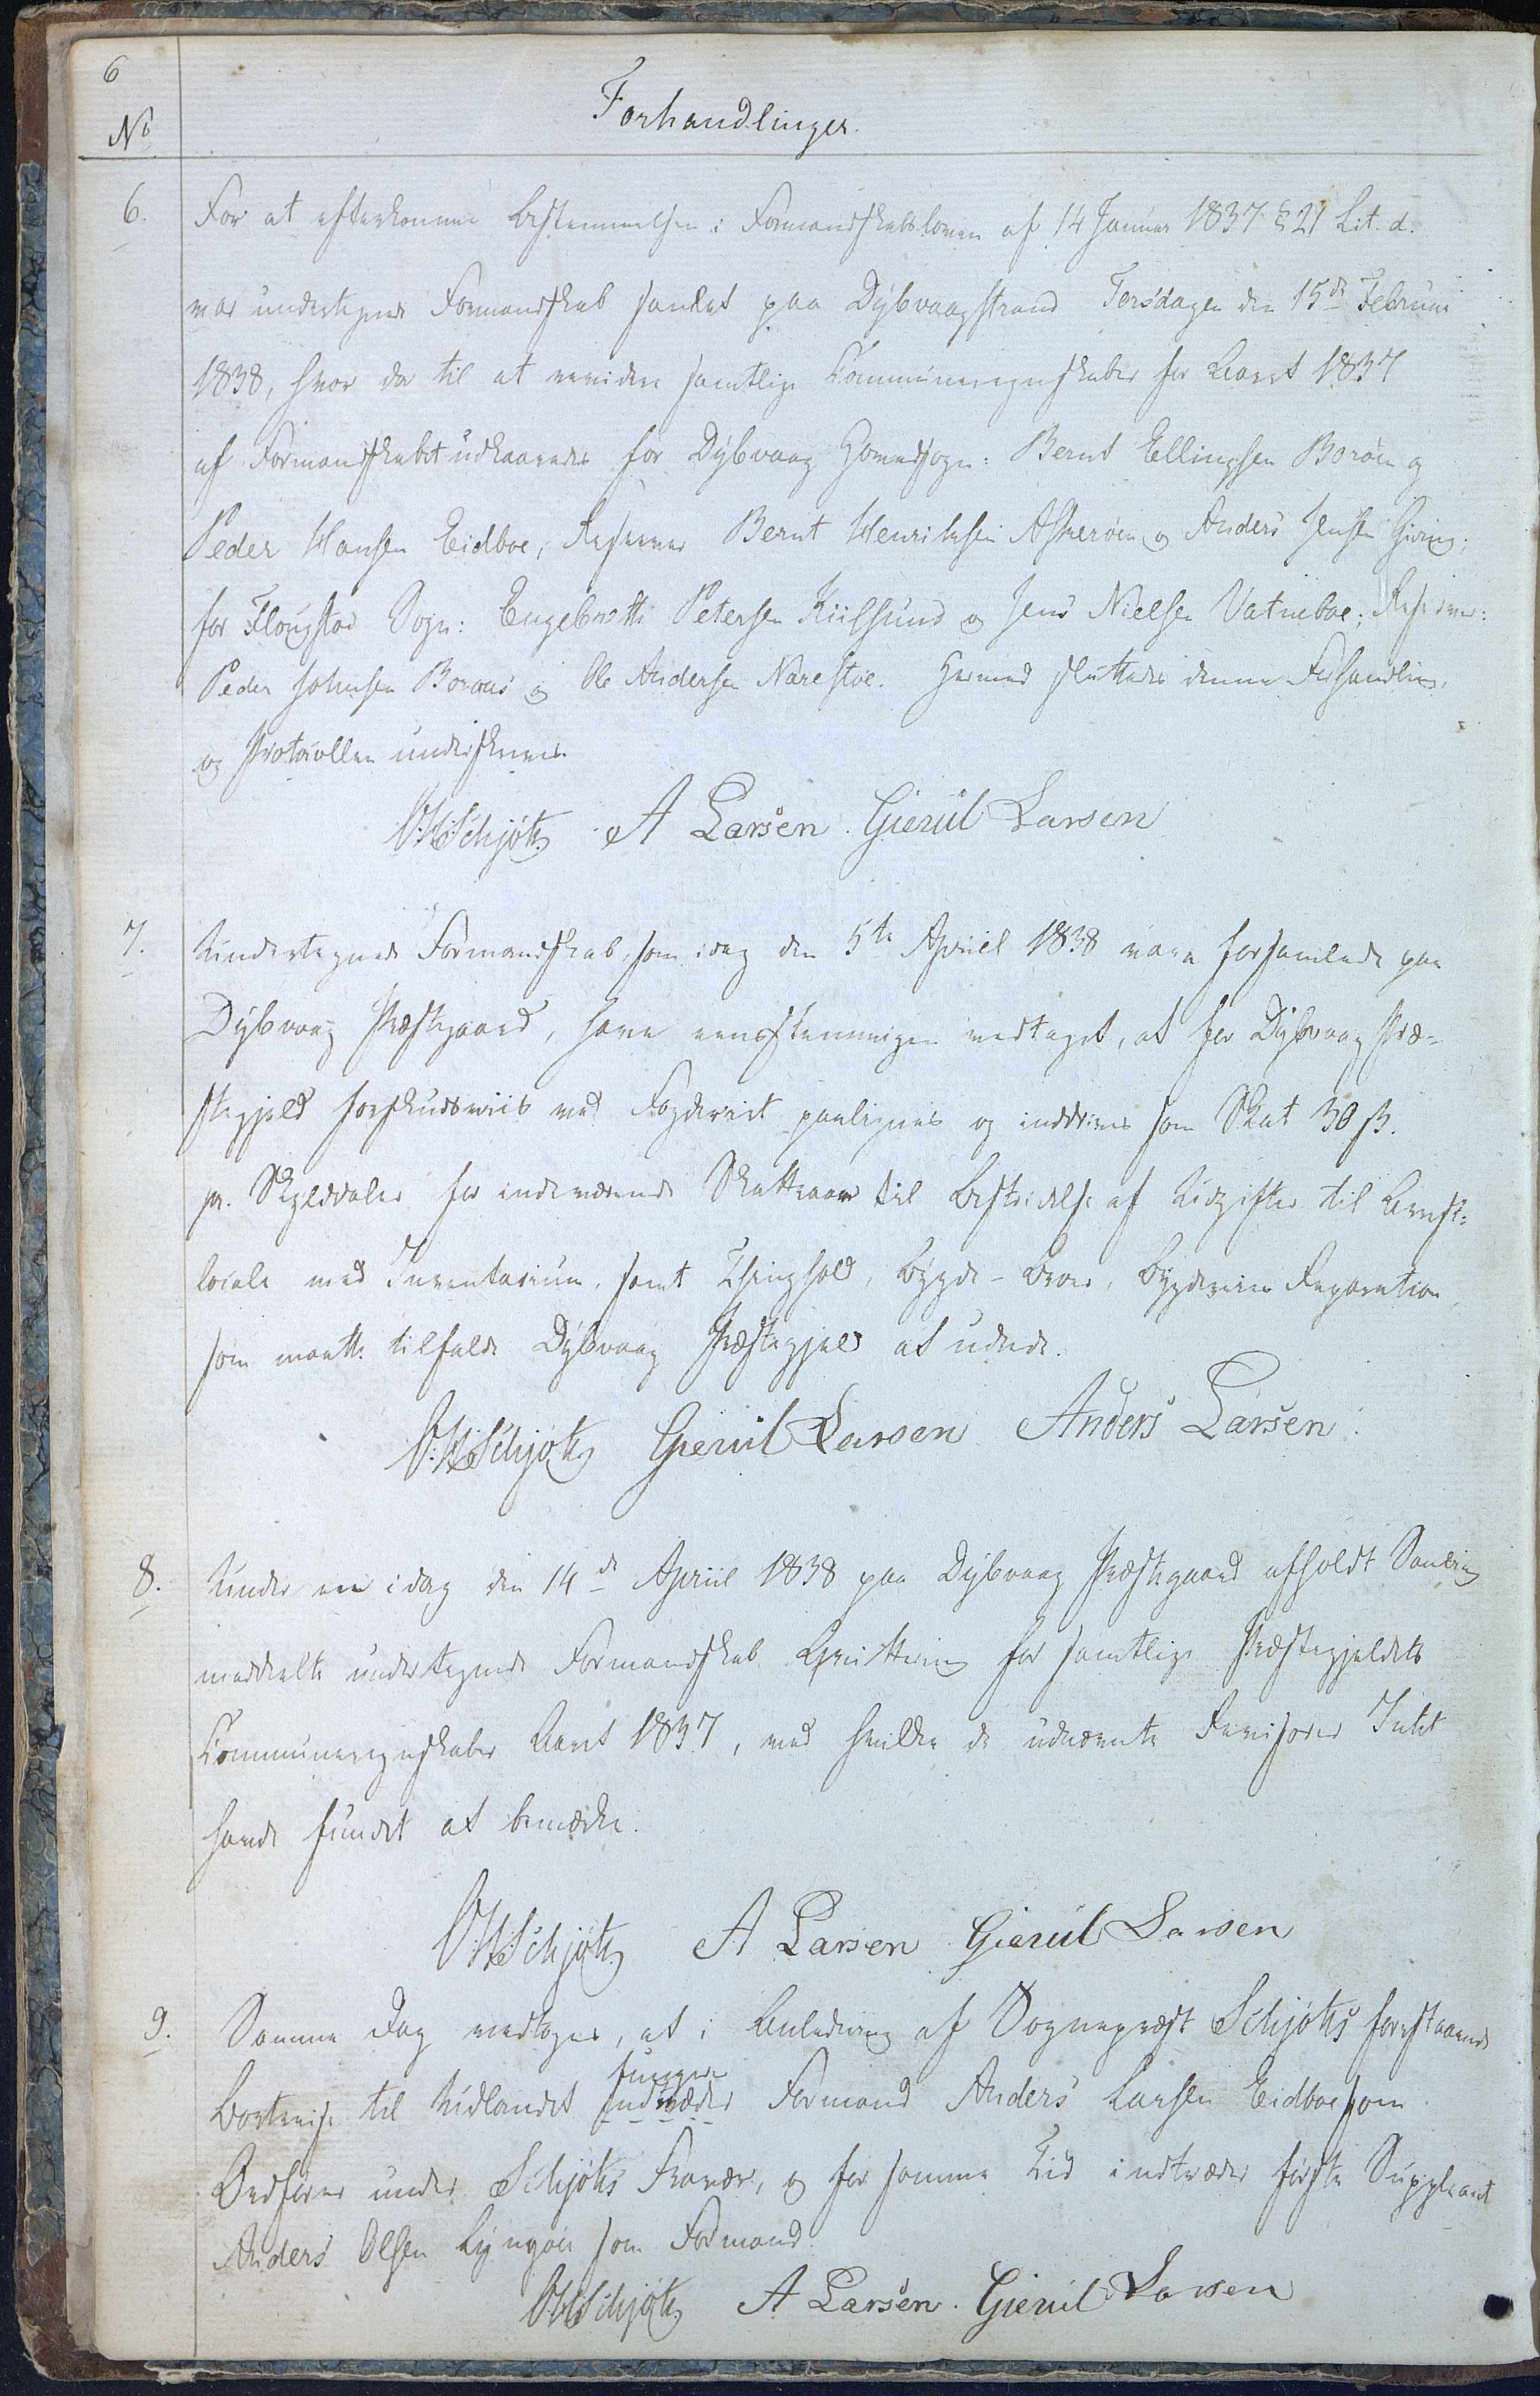 6
No
Forhandlinger.
6.
For at efterkomme Bestemmelsen i Formandskabsloven af 14 Januar 1837 § 21 Lit. d.
var undertegnede Formandskab samlet paa Dybvaagstrand Torsdagen den 15de Februar
1838, hvor da til at revidere samtlige Communeregnskaber for Aaret 1837
af Formandskabet udkaaredes for Dybvaag Hovedsogn: Bernt Ellingsen Borøen og
Peder Hansen Eidboe, Reserver Bernt Henriksen Askerøen og Anders Jensen Giving;
for Flougstad Sogn: Engebreth Petersen Kiilsund og Jens Nielsen Vatneboe; Reserver:
Peder Johnsen Boraas og Ole Andersen Narestøe. Hermed sluttedes denne Forhandling,
og Protocollen underskrives.
OHSchjøtz A Larsen. Gierul Larsen
7.
Undertegnede Formandskab, som idag den 5te Apriil 1838 vare forsamlede paa
Dybvaag Præstegaard, have eensstemmigen vedtaget, at for Dybvaag Præ-
stegjeld forskudsviis ved Fogderiet paalignes og inddrives som Skat 30 ß.
pr. Skylddaler for indeværende Skatteaar til Bestridelse af Udgifter til Arrest-
locale med Inventarium, samt Thinghold, Bygde-Broer, Bygdeveies Reparation,
som maatte tilfalde Dybvaag Præstegjeld at udrede.
OHSchjøtz Gierul Larsen Anders Larsen.
8.
Under en idag den 14de Apriil 1838 paa Dybvaag Præstegaard afholdt Samling
meddeelte undertegnede Formandskab Qvittering for samtlige Præstegjeldets
Communeregnskaber Aaret 1837, ved hvilke de udnævnte Revisorer Intet
havde fundet at bemærke.
OHSchjøtz A Larsen Gierul Larsen
9.
Samme Dag vedtoges, at i Anledning af Sognepræst Schjøtz's forestaaende
fungere
Bortreise til Udlandet indtræder Formand Anders Larsen Eidboe som
Ordfører under Schjøtz's Fravær, og for samme Tid indtræder første Suppleant
Anders Olsen Lyngøer som Formand.
OHSchjøtz A Larsen. Gierul Larsen